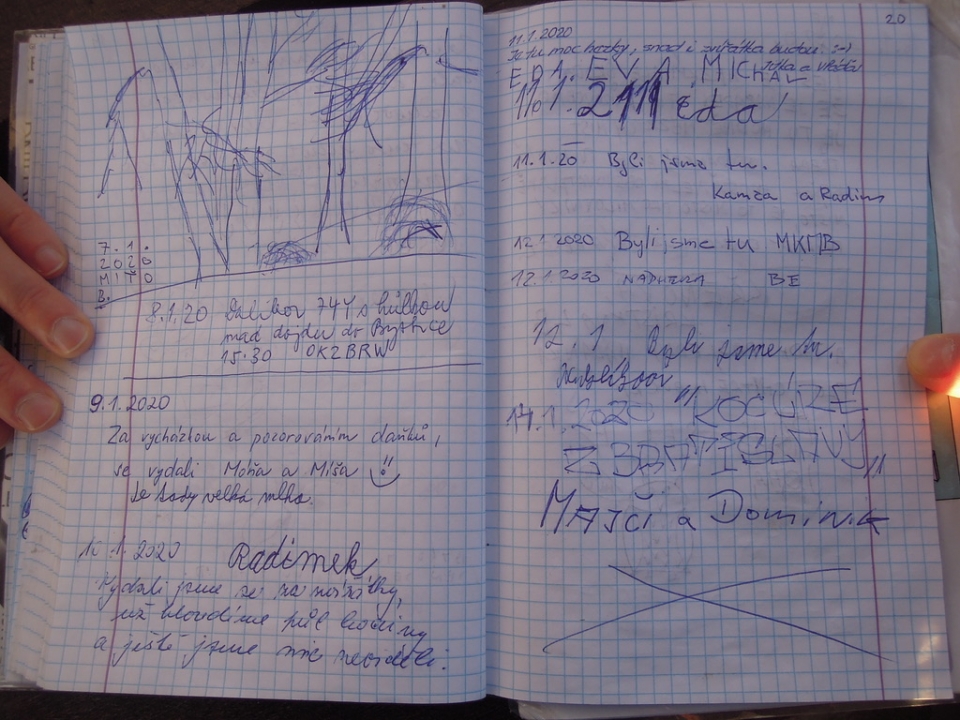 7.1.
2020
MIŤO
B.
8.1.20 Dalibor 74Y s hůlkou
nad dojdu do Bystřice
15:30 OK2BRW
9.1.2020
Za vycházkou a pozorováním daňků,
se vydali Móňa a Míša
Je tady velká mlha.
10.1.2020 Radimek
Vydali jsme se za zvířátky,
už bloudíme půl hodiny
a ještě jsme nic neviděli.
20
11.1.2020
Je tu moc hezky, snad i zvířátka budou :-)
a Vláďa
EDA. EVA. MICHAL
11.1. Eda
11.1.20 Byli jsme tu.
Kamča a Radim
12.1.2020 Byli sme tu MKMB
12.1.2020 NÁDHERA BE
12.1 Byli jsme tu.
14.1.2020 "KOCÚRE
Z BRATISLAVY"
MAJČI a Dominik